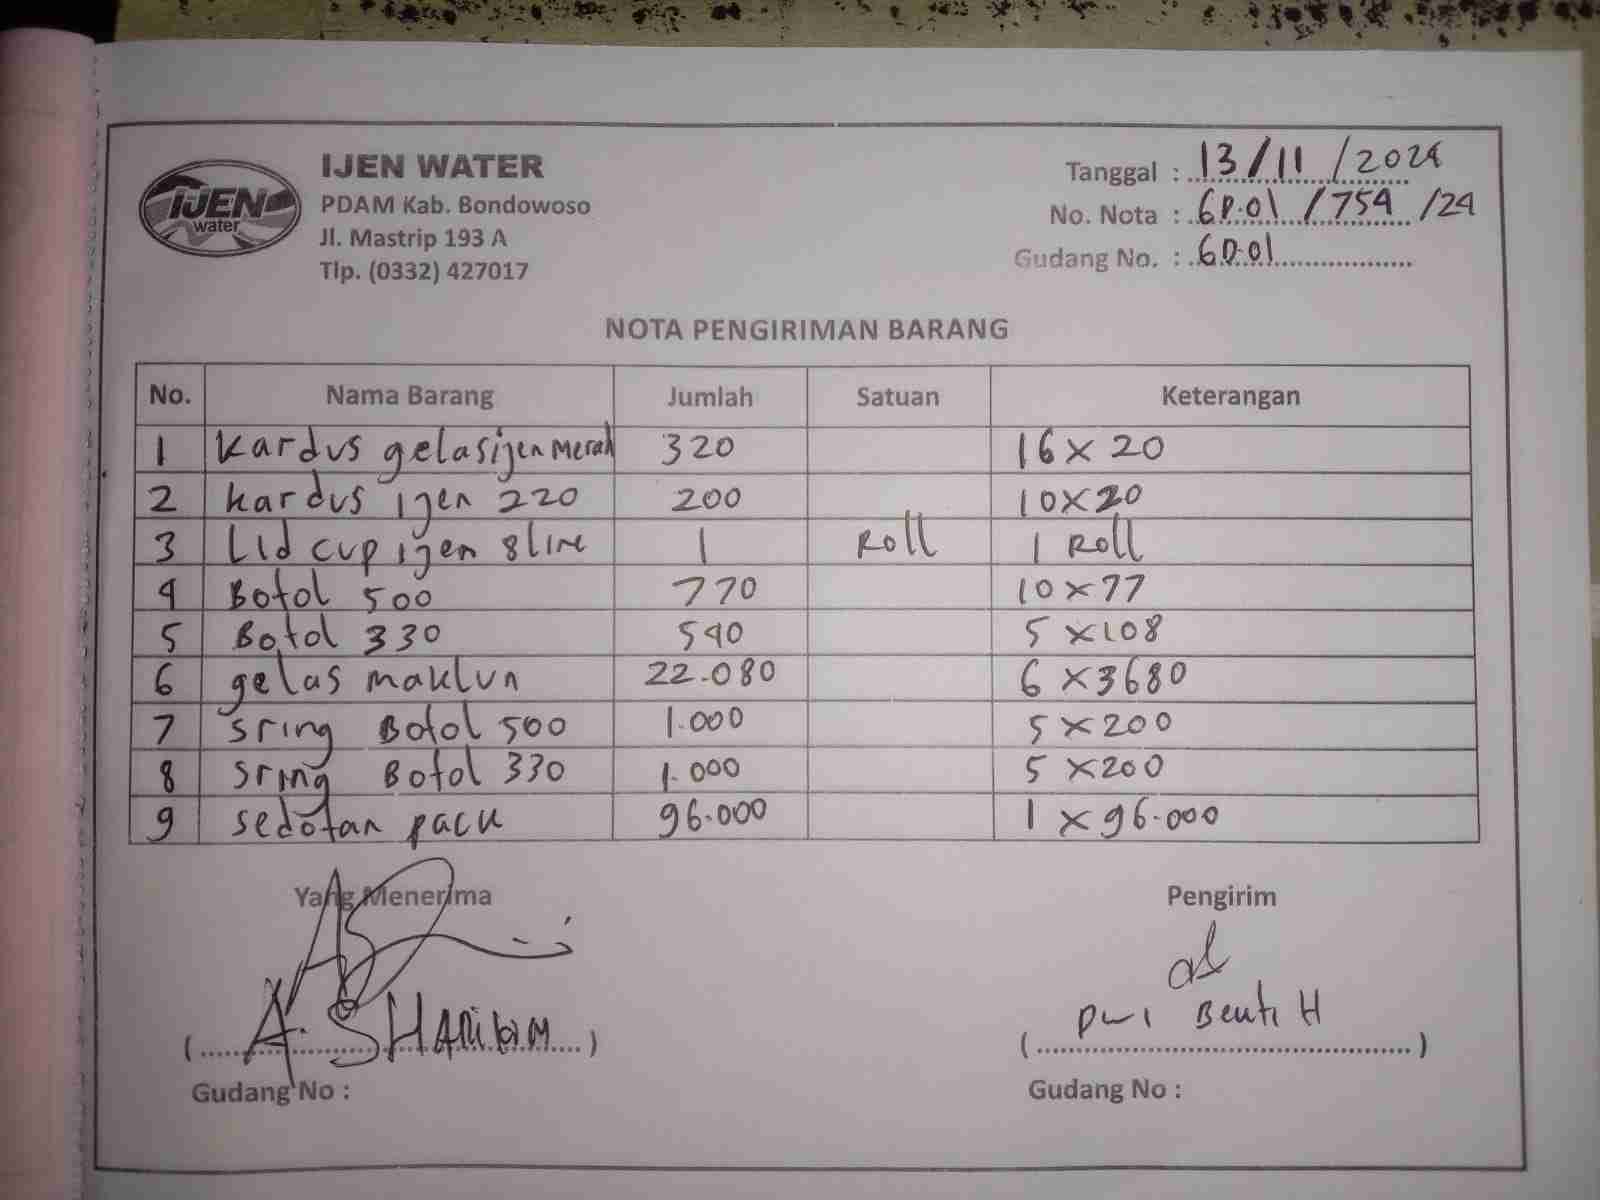 IJEN WATER
PDAM Kab. Bondowoso
Jl. Mastrip 193 A
Tlp. (0332) 427017
IJEN
water
Tanggal : 13/11/2024
No. Nota : GD.01/754/24
Gudang No. : GD.01
NOTA PENGIRIMAN BARANG
No. Nama Barang Jumlah Satuan Keterangan
1 Kardus gelas ijen Merah 320 16 x 20
2 kardus ijen 220 200 10 x 20
3 Lid cup ijen 8 line 1 Roll 1 Roll
4 Botol 500 770 10 x 77
5 Botol 330 540 5 x 108
6 gelas maklun 22.080 6 x 3680
7 sring Botol 500 1.000 5 x 200
8 sring Botol 330 1.000 5 x 200
9 sedotan pack 96.000 1 x 96.000
Yang Menerima Pengirim
Dwi H
Gudang No : Gudang No :